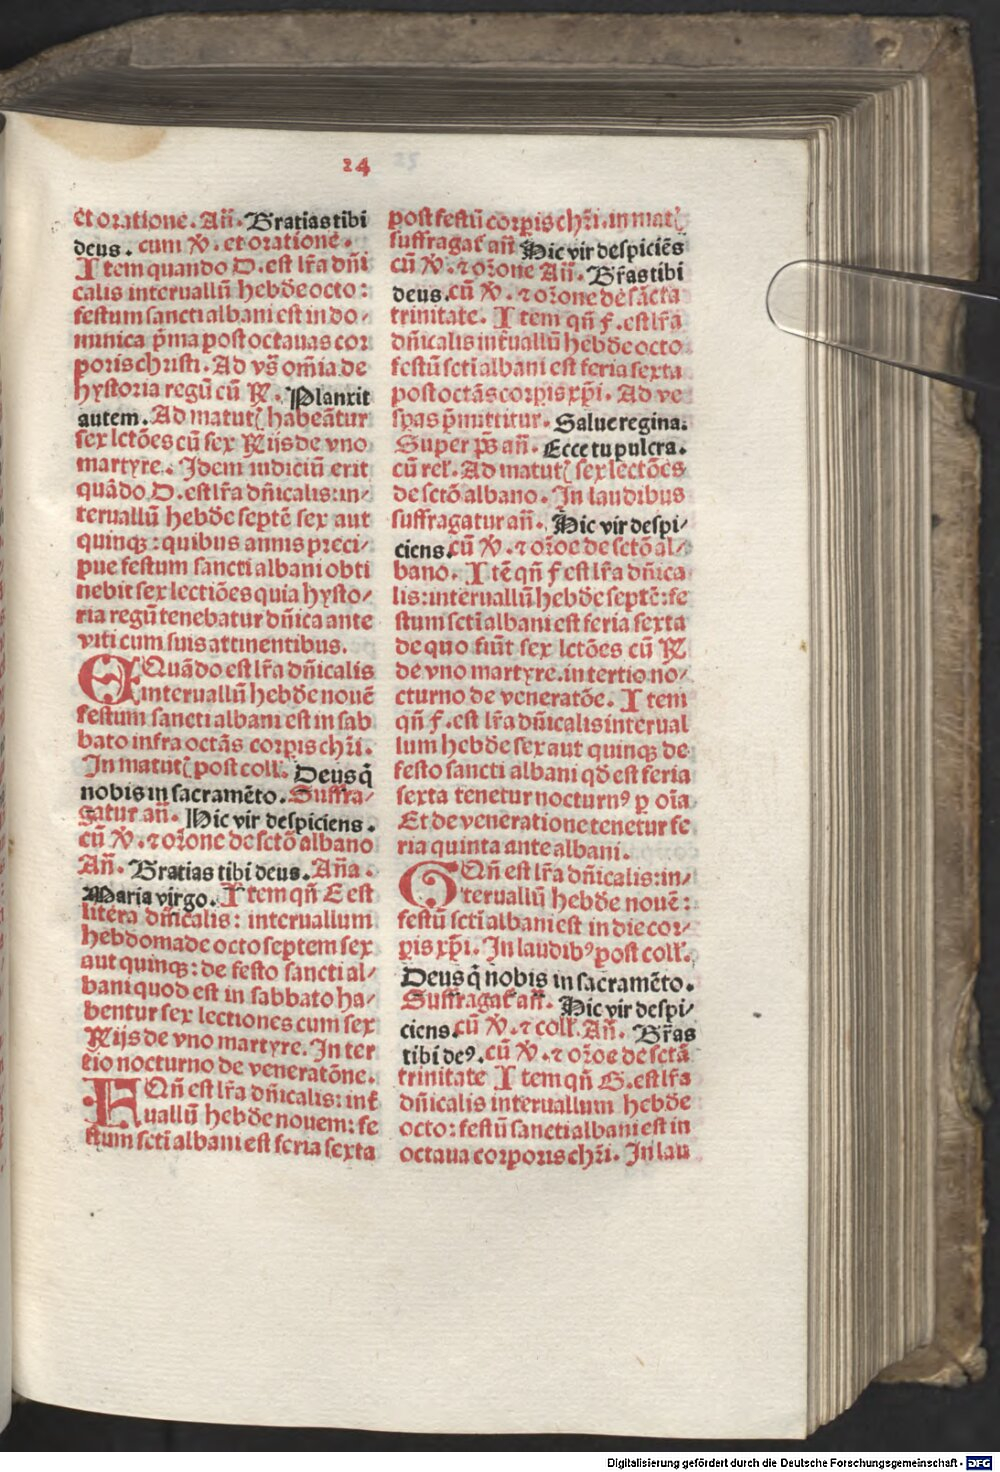 24
et oratione. Añ. Gratias tibi
deus. cum ꝟ. et oratione.
Item quando D. est lr̃a dñi
calis interuallū hebd̃e octo:
festum sancti albani est in do-
minica p̃ma post octauas cor
poris christi. Ad vs̃ om̃ia de
hystoria regū cū ℟. Planxit
autem. Ad matut̃ habeãtur
sex lctões cū sex ℟ijs de vno
martyre. Idem iudiciū erit
quãdo D. est lr̃a dñicalis: in/
teruallū hebd̃e septẽ sex aut
quinqꝫ: quibus annis preci/
pue festum sancti albani obti
nebit sex lectiões quia hysto/
ria regū tenebatur dñica ante
viti cum suis attinentibus.
EQuãdo est lr̃a dñicalis
interuallū hebd̃e nouẽ
festum sancti albani est in sab
bato infra octãs corꝑis chr̃i.
In matut̃ post coll. Deus q̃
nobis in sacramẽto. Suffra/
gatur añ. Hic vir despiciens.
cū ꝟ. ⁊ or̃one de sctõ albano
Añ. Gratias tibi deus. Añа.
Maria virgo. Item qñ E est
litera dñicalis: interuallum
hebdomade octo septem sex
aut quinqꝫ: de festo sancti al/
bani quod est in sabbato ha/
bentur sex lectiones cum sex
℟ijs de vno martyre. In ter
tio nocturno de veneratõne.
FQñ est lr̃a dñicalis: int̃
uallū hebd̃e nouem: fe
stum scti albani est feria sexta
post festū corꝑis chr̃i. in mat̃
suffragat̃ añ Hic vir despiciẽs
cū ꝟ. ⁊ or̃one Añ. Gr̃as tibi
deus. cū ꝟ. ⁊ or̃one de sãcta
trinitate. Item qñ f. est lr̃a
dñicalis int̃uallū hebd̃e octo
festū scti albani est feria sexta
post octãs corꝑis xp̃i. Ad ve
spas p̃mittitur. Salue regina.
Super ps̃ añ. Ecce tu pulcra.
cū rel. Ad matut̃ sex lectões
de sctõ albano. In laudibus
suffragatur añ. Hic vir despi/
ciens. cū ꝟ. ⁊ or̃oe de sctõ al/
bano. Itẽ qñ f est lr̃a dñica
lis: interuallū hebd̃e septẽ: fe
stum scti albani est feria sexta
de quo fiũt sex lctões cū ℟
de vno martyre. in tertio no/
cturno de veneratõe. Item
qñ f. est lr̃a dñicalis interual
lum hebd̃e sex aut quinqꝫ de
festo sancti albani qd̃ est feria
sexta tenetur nocturnꝰ ꝑ oĩa
Et de veneratione tenetur fe
ria quinta ante albani.
GQñ est lr̃a dñicalis: in/
teruallū hebd̃e nouẽ:
festū scti albani est in die cor/
ꝑis xp̃i. In laudibꝰ post coll.
Deus q̃ nobis in sacramẽto.
Suffragat̃ añ. Hic vir despi/
ciens. cū ꝟ. ⁊ coll. Añ. Gr̃as
tibi deꝰ. cū ꝟ. ⁊ or̃oe de sctã
trinitate Item qñ G. est lr̃a
dñicalis interuallum hebd̃e
octo: festū sancti albani est in
octaua corporis chr̃i. In lau
Digitalisierung gefördert durch die Deutsche Forschungsgemeinschaft - DFG